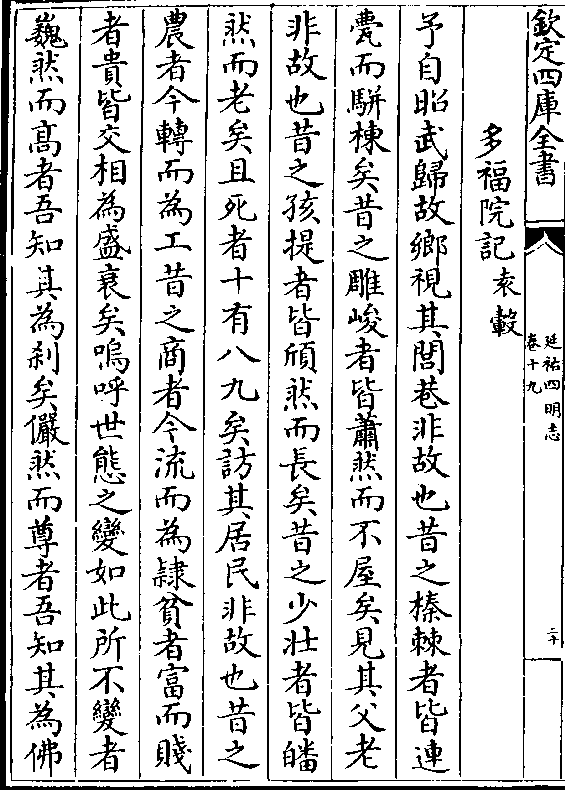 欽定四庫全書
延祐四明志
卷十九
二十
多福院記 袁轂
予自昭武歸故鄉視其閭巷非故也昔之榛棘者皆連
甍而駢棟矣昔之雕峻者皆蕭然而不屋矣見其父老
非故也昔之孩提者皆頎然而長矣昔之少壯者皆皤
然而老矣且死者十有八九矣訪其居民非故也昔之
農者今轉而為工昔之商者今流而為隸貧者富而賤
者貴皆交相為盛衰矣嗚呼世態之變如此所不變者
巍然而高者吾知其為刹矣儼然而尊者吾知其為佛